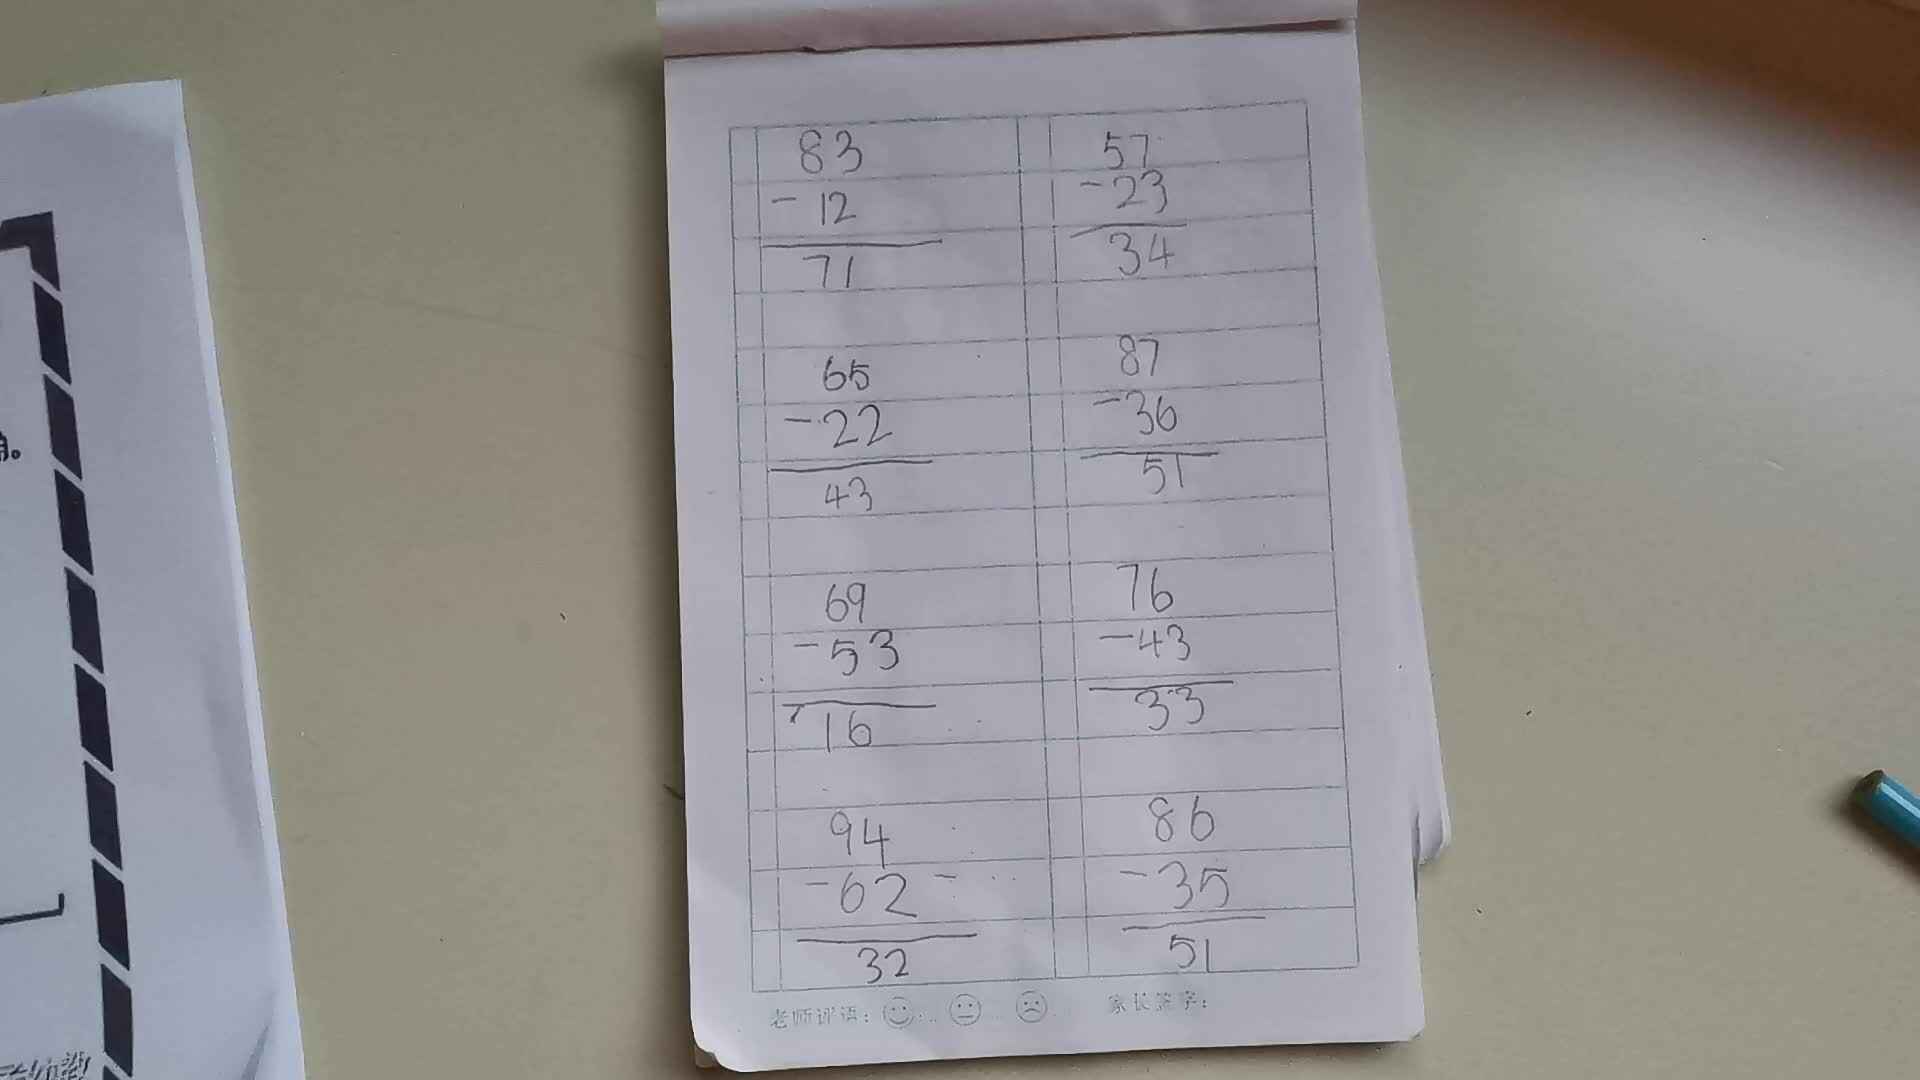 83
- 12
71
57
- 23
34
65
- 22
43
87
- 36
51
69
- 53
16
76
- 43
33
94
- 62 -
32
86
- 35
51
老师评语:
家长签字: